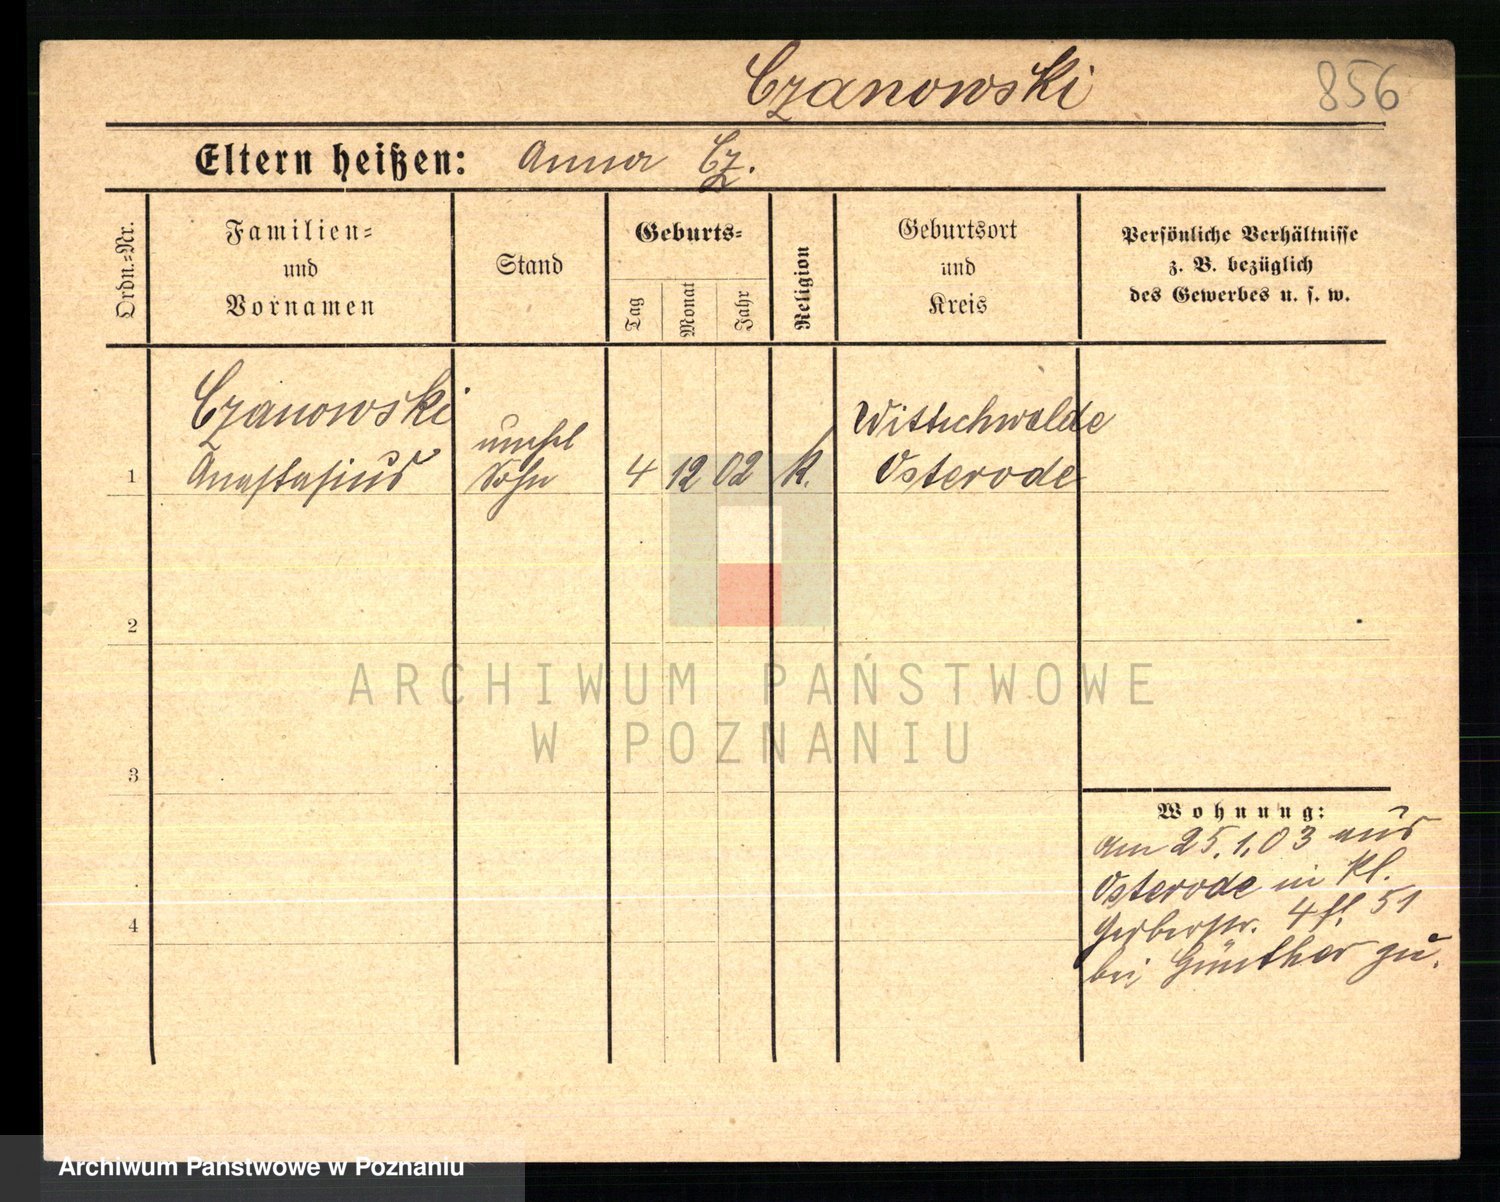 Czanowski
856
Eltern heißen: Anna Cz.
Ordn.=Nr.
Familien=
und
Vornamen
Stand
Geburts=
Tag
Monat
Jahr
Religion
Geburtsort
und
Kreis
Persönliche Verhältnisse
z. B. bezüglich
des Gewerbes u. s. w.
1
Czanowski
Anastasius
unehel
Sohn
4 12 02 k.
Wittichwalde
Osterode
2
3
4
Wohnung:
am 25.1.03 aus
Osterode in Kl.
Gerberstr. 4 51
bei Günther zu.
ARCHIWUM PAŃSTWOWE
W POZNANIU
Archiwum Państwowe w Poznaniu